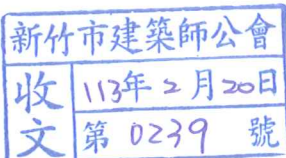 新竹市建築師公會
收文
113年2月20日
第0239號